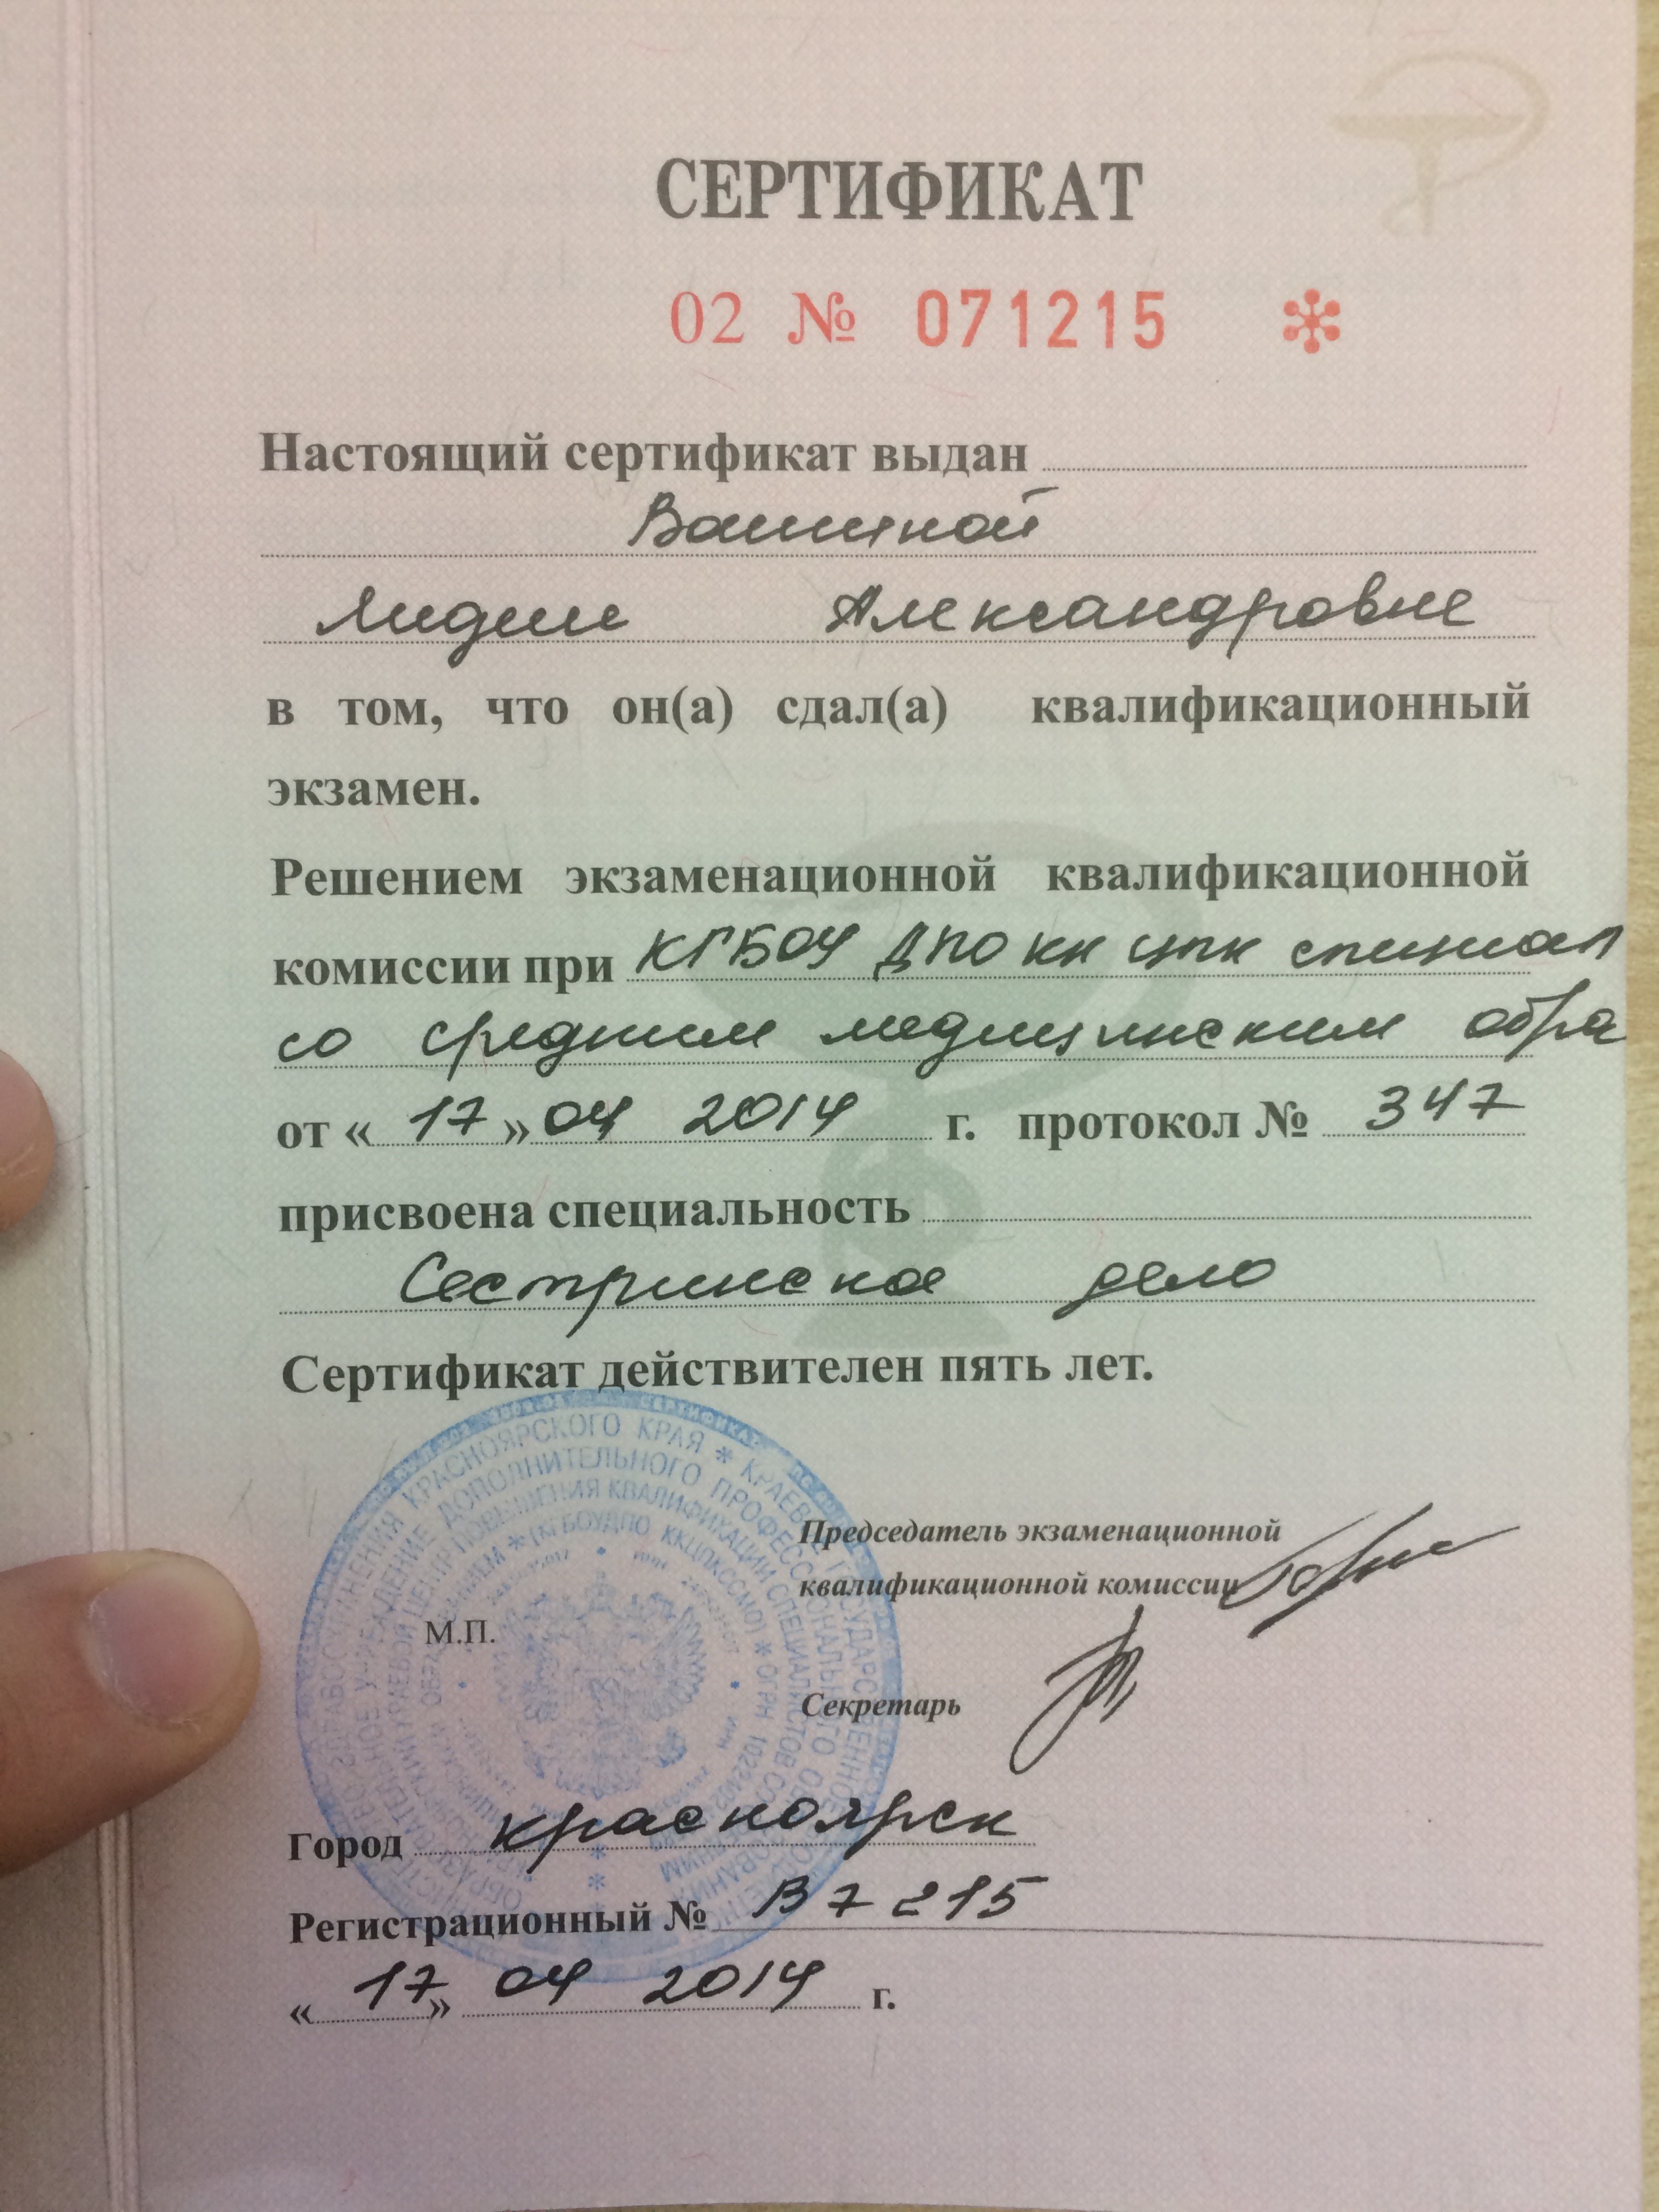 СЕРТИФИКАТ
02 № 071215 *
Настоящий сертификат выдан
Вашиной
Лидии Александровне
в том, что он(а) сдал(а) квалификационный
экзамен.
Решением экзаменационной квалификационной
комиссии при КГБОУ ДПО КК ЦПК специал
со средним медицинским обра
от « 17 » 04 2014 г. протокол № 347
присвоена специальность
Сестринское дело
Сертификат действителен пять лет.
КРАСНОЯРСКОГО КРАЯ * КРАЕВОЕ
ДОПОЛНИТЕЛЬНОГО
ПОВЫШЕНИЯ КВАЛИФИКАЦИИ СПЕЦИАЛИСТОВ
Председатель экзаменационной
квалификационной комиссии
М.П.
Секретарь
Город Красноярск
Регистрационный № В 7215
« 17 » 04 2014 г.